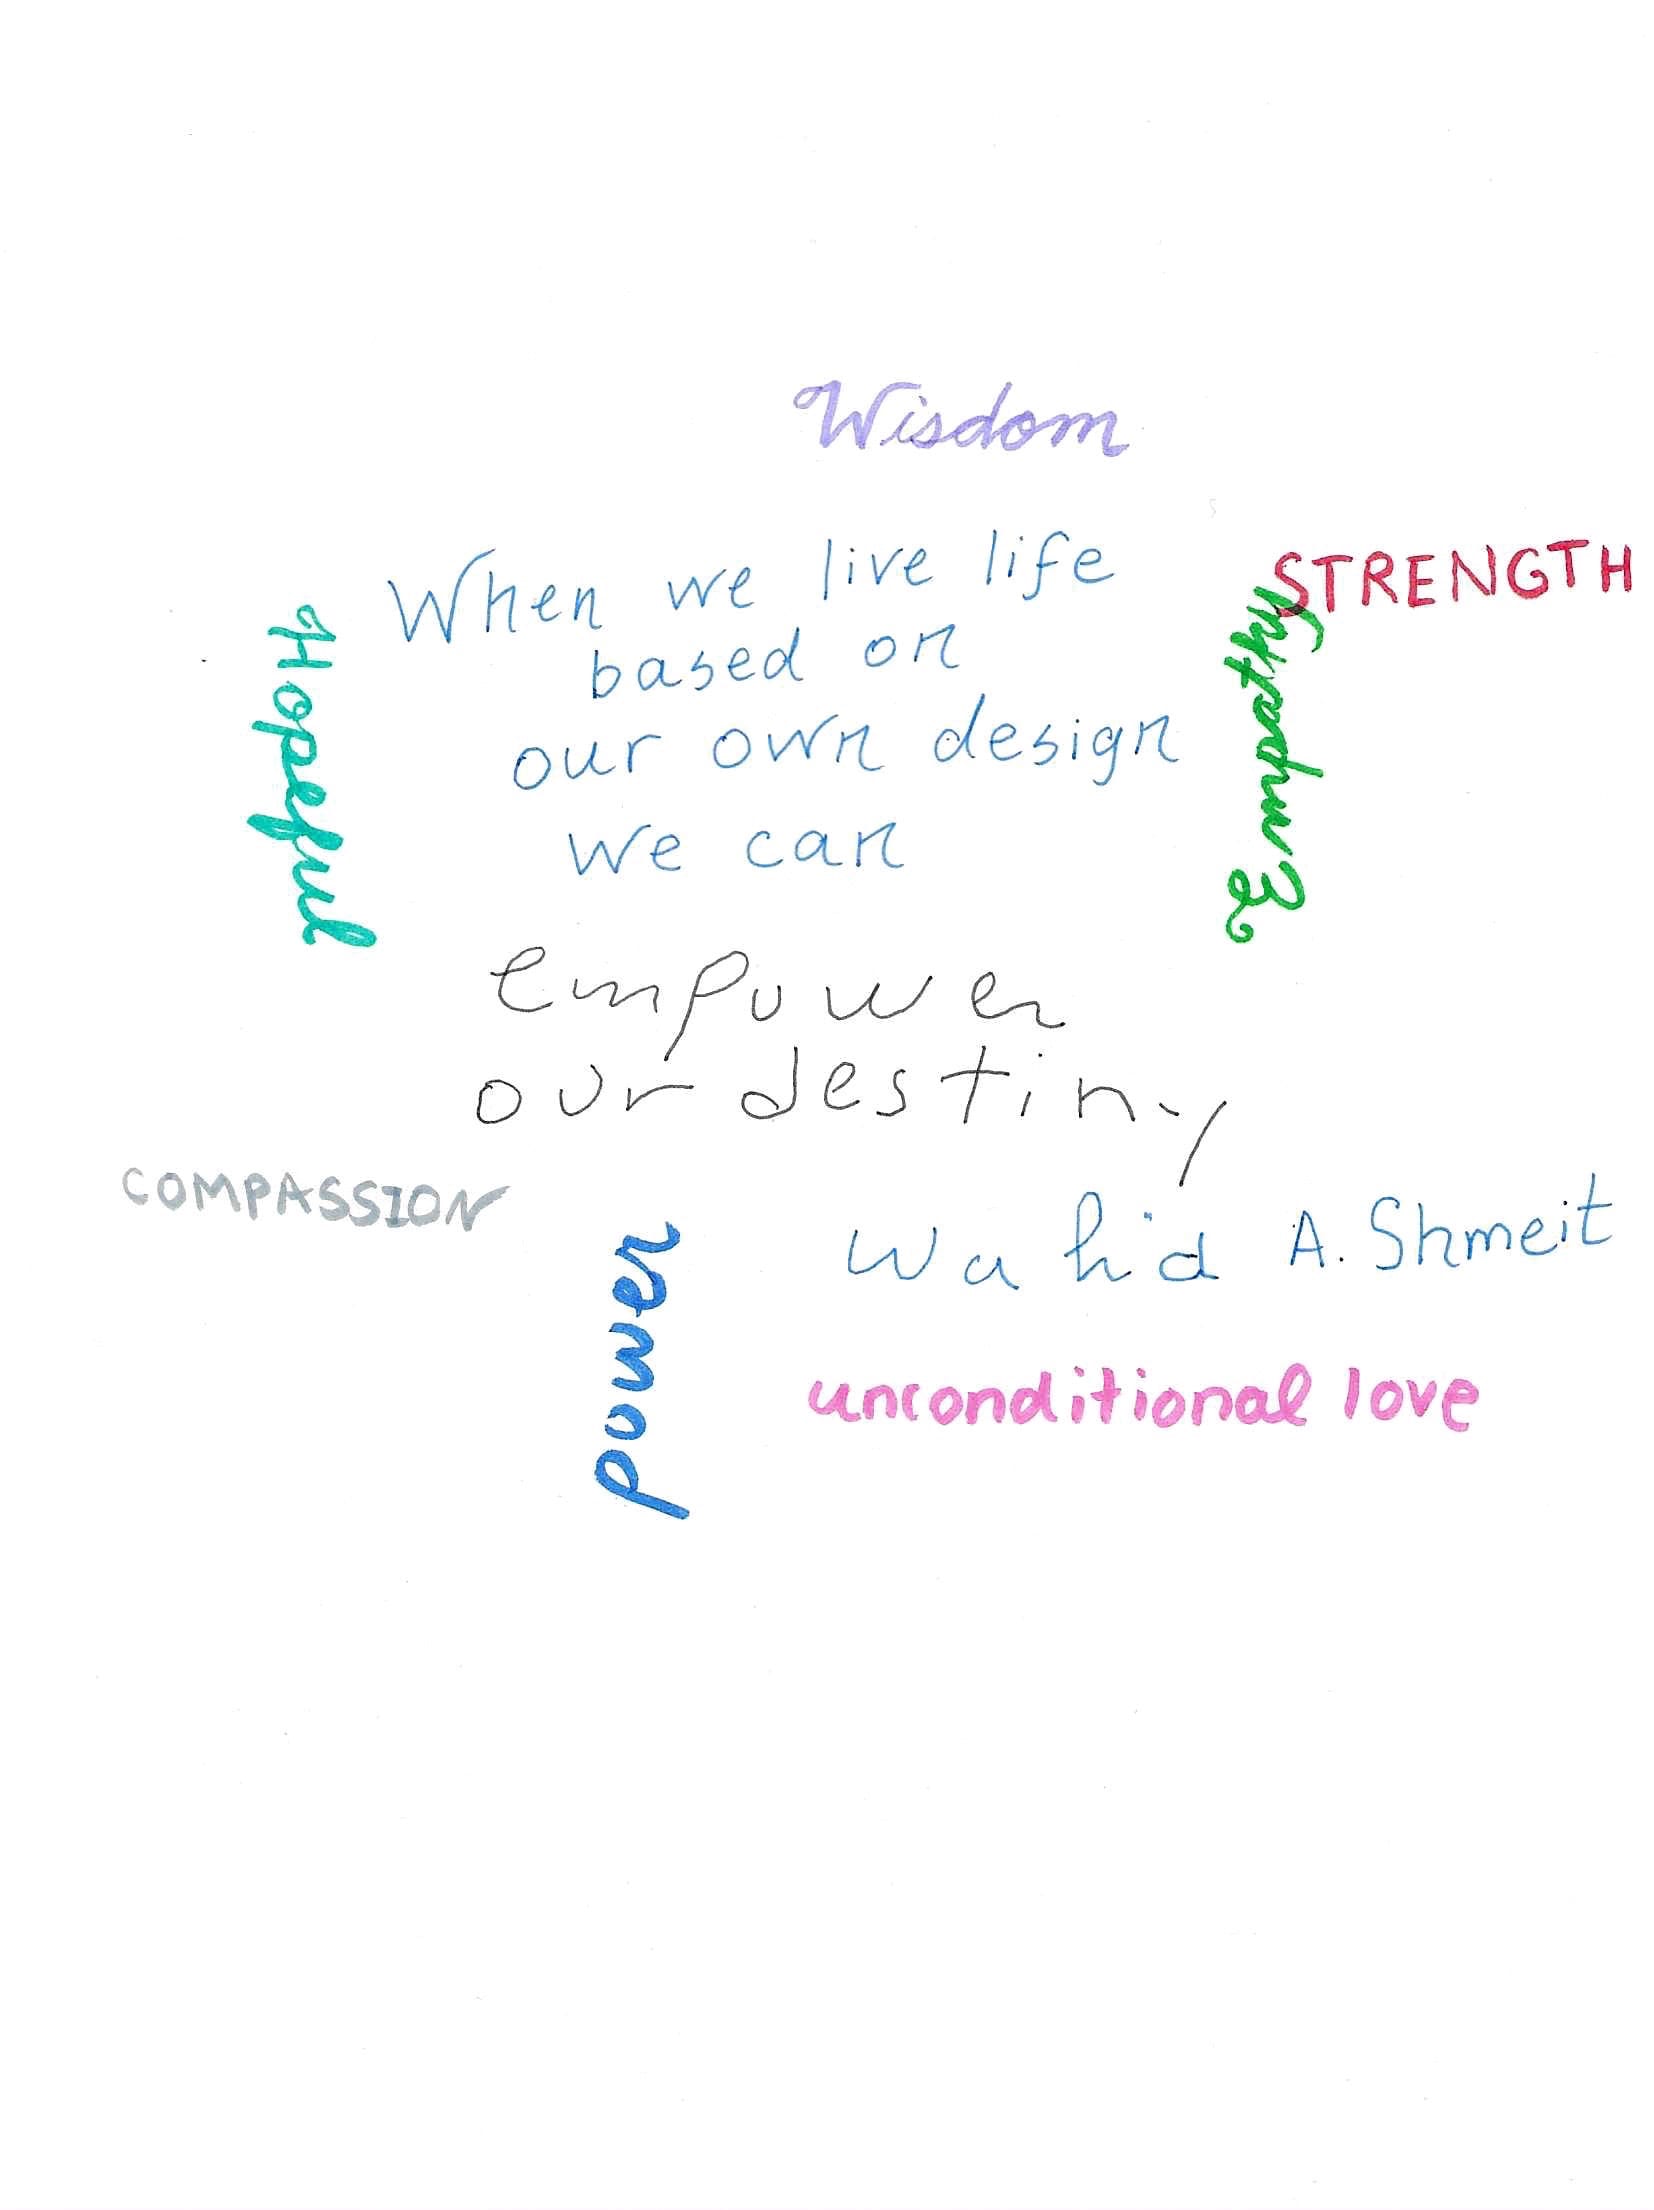 Wisdom
When we live life
based on
our own design
we can
empower
our destiny
Wahid A. Shmeit
STRENGTH
Hopeful
Empathy
COMPASSION
power
unconditional love